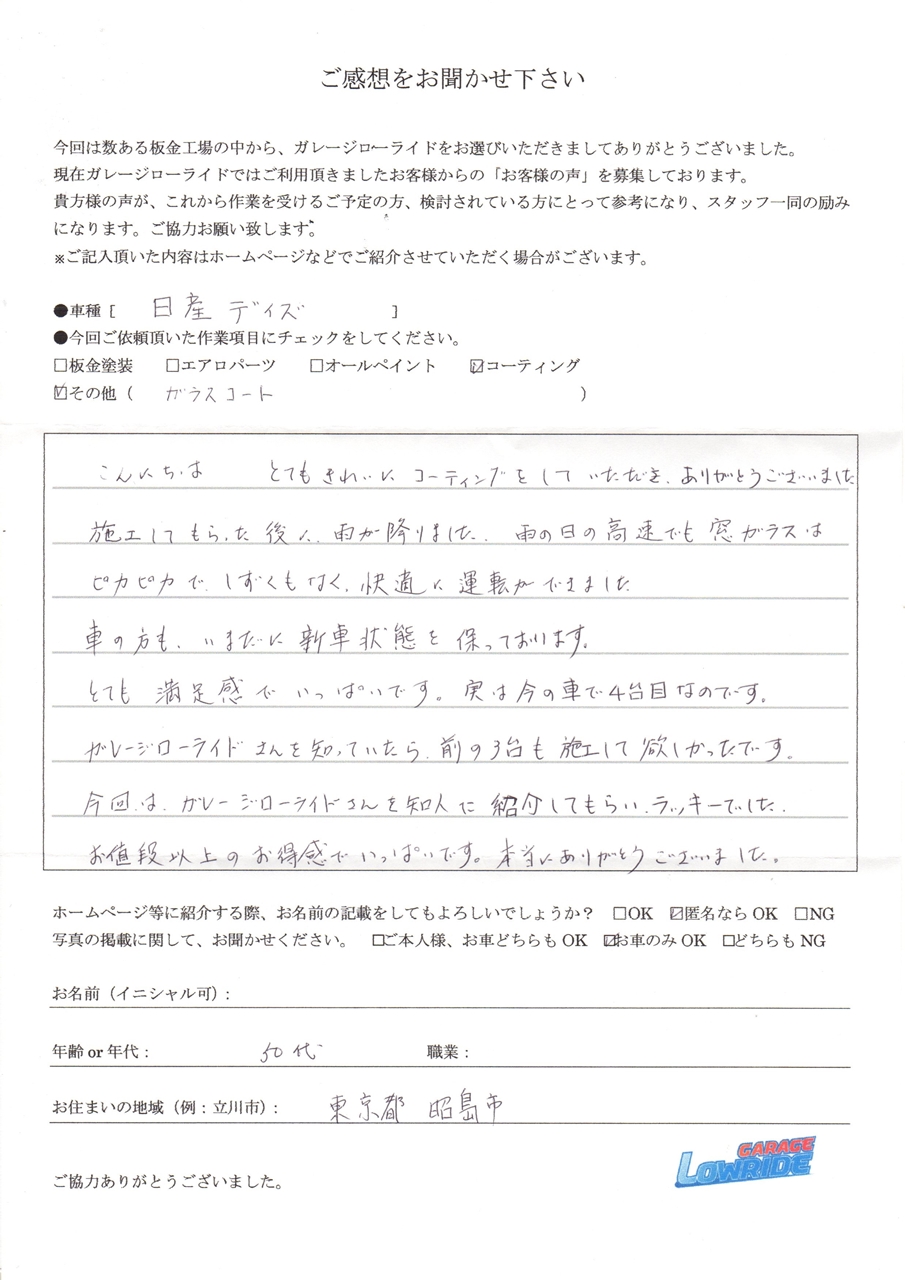 ご感想をお聞かせ下さい
今回は数ある板金工場の中から、ガレージローライドをお選びいただきましてありがとうございました。
現在ガレージローライドではご利用頂きましたお客様からの「お客様の声」を募集しております。
貴方様の声が、これから作業を受けるご予定の方、検討されている方にとって参考になり、スタッフ一同の励み
になります。ご協力お願い致します。
※ご記入頂いた内容はホームページなどでご紹介させていただく場合がございます。
●車種[ 日産 デイズ ]
●今回ご依頼頂いた作業項目にチェックをしてください。
□板金塗装 □エアロパーツ □オールペイント ☑コーティング
☑その他( ガラスコート )
こんにちは とてもきれいに コーティングをして いただき、ありがとうございました
施工してもらった後に、雨が降りました、雨の日の高速でも窓ガラスは
ピカピカで、しずくもなく、快適に運転ができました
車の方も、いまだに新車状態を保っております。
とても満足感でいっぱいです。実は今の車で4台目なのです。
ガレージローライドさんを知っていたら、前の3台も施工して欲しかったです。
今回は、ガレージローライドさんを知人に紹介してもらい、ラッキーでした、
お値段以上のお得感でいっぱいです。本当にありがとうございました。
ホームページ等に紹介する際、お名前の記載をしてもよろしいでしょうか? □OK ☑匿名なら OK □NG
写真の掲載に関して、お聞かせください。 □ご本人様、お車どちらも OK ☑お車のみ OK □どちらも NG
お名前(イニシャル可):
年齢 or 年代: 50代 職業:
お住まいの地域(例:立川市): 東京都 昭島市
GARAGE
LOWRIDE
ご協力ありがとうございました。